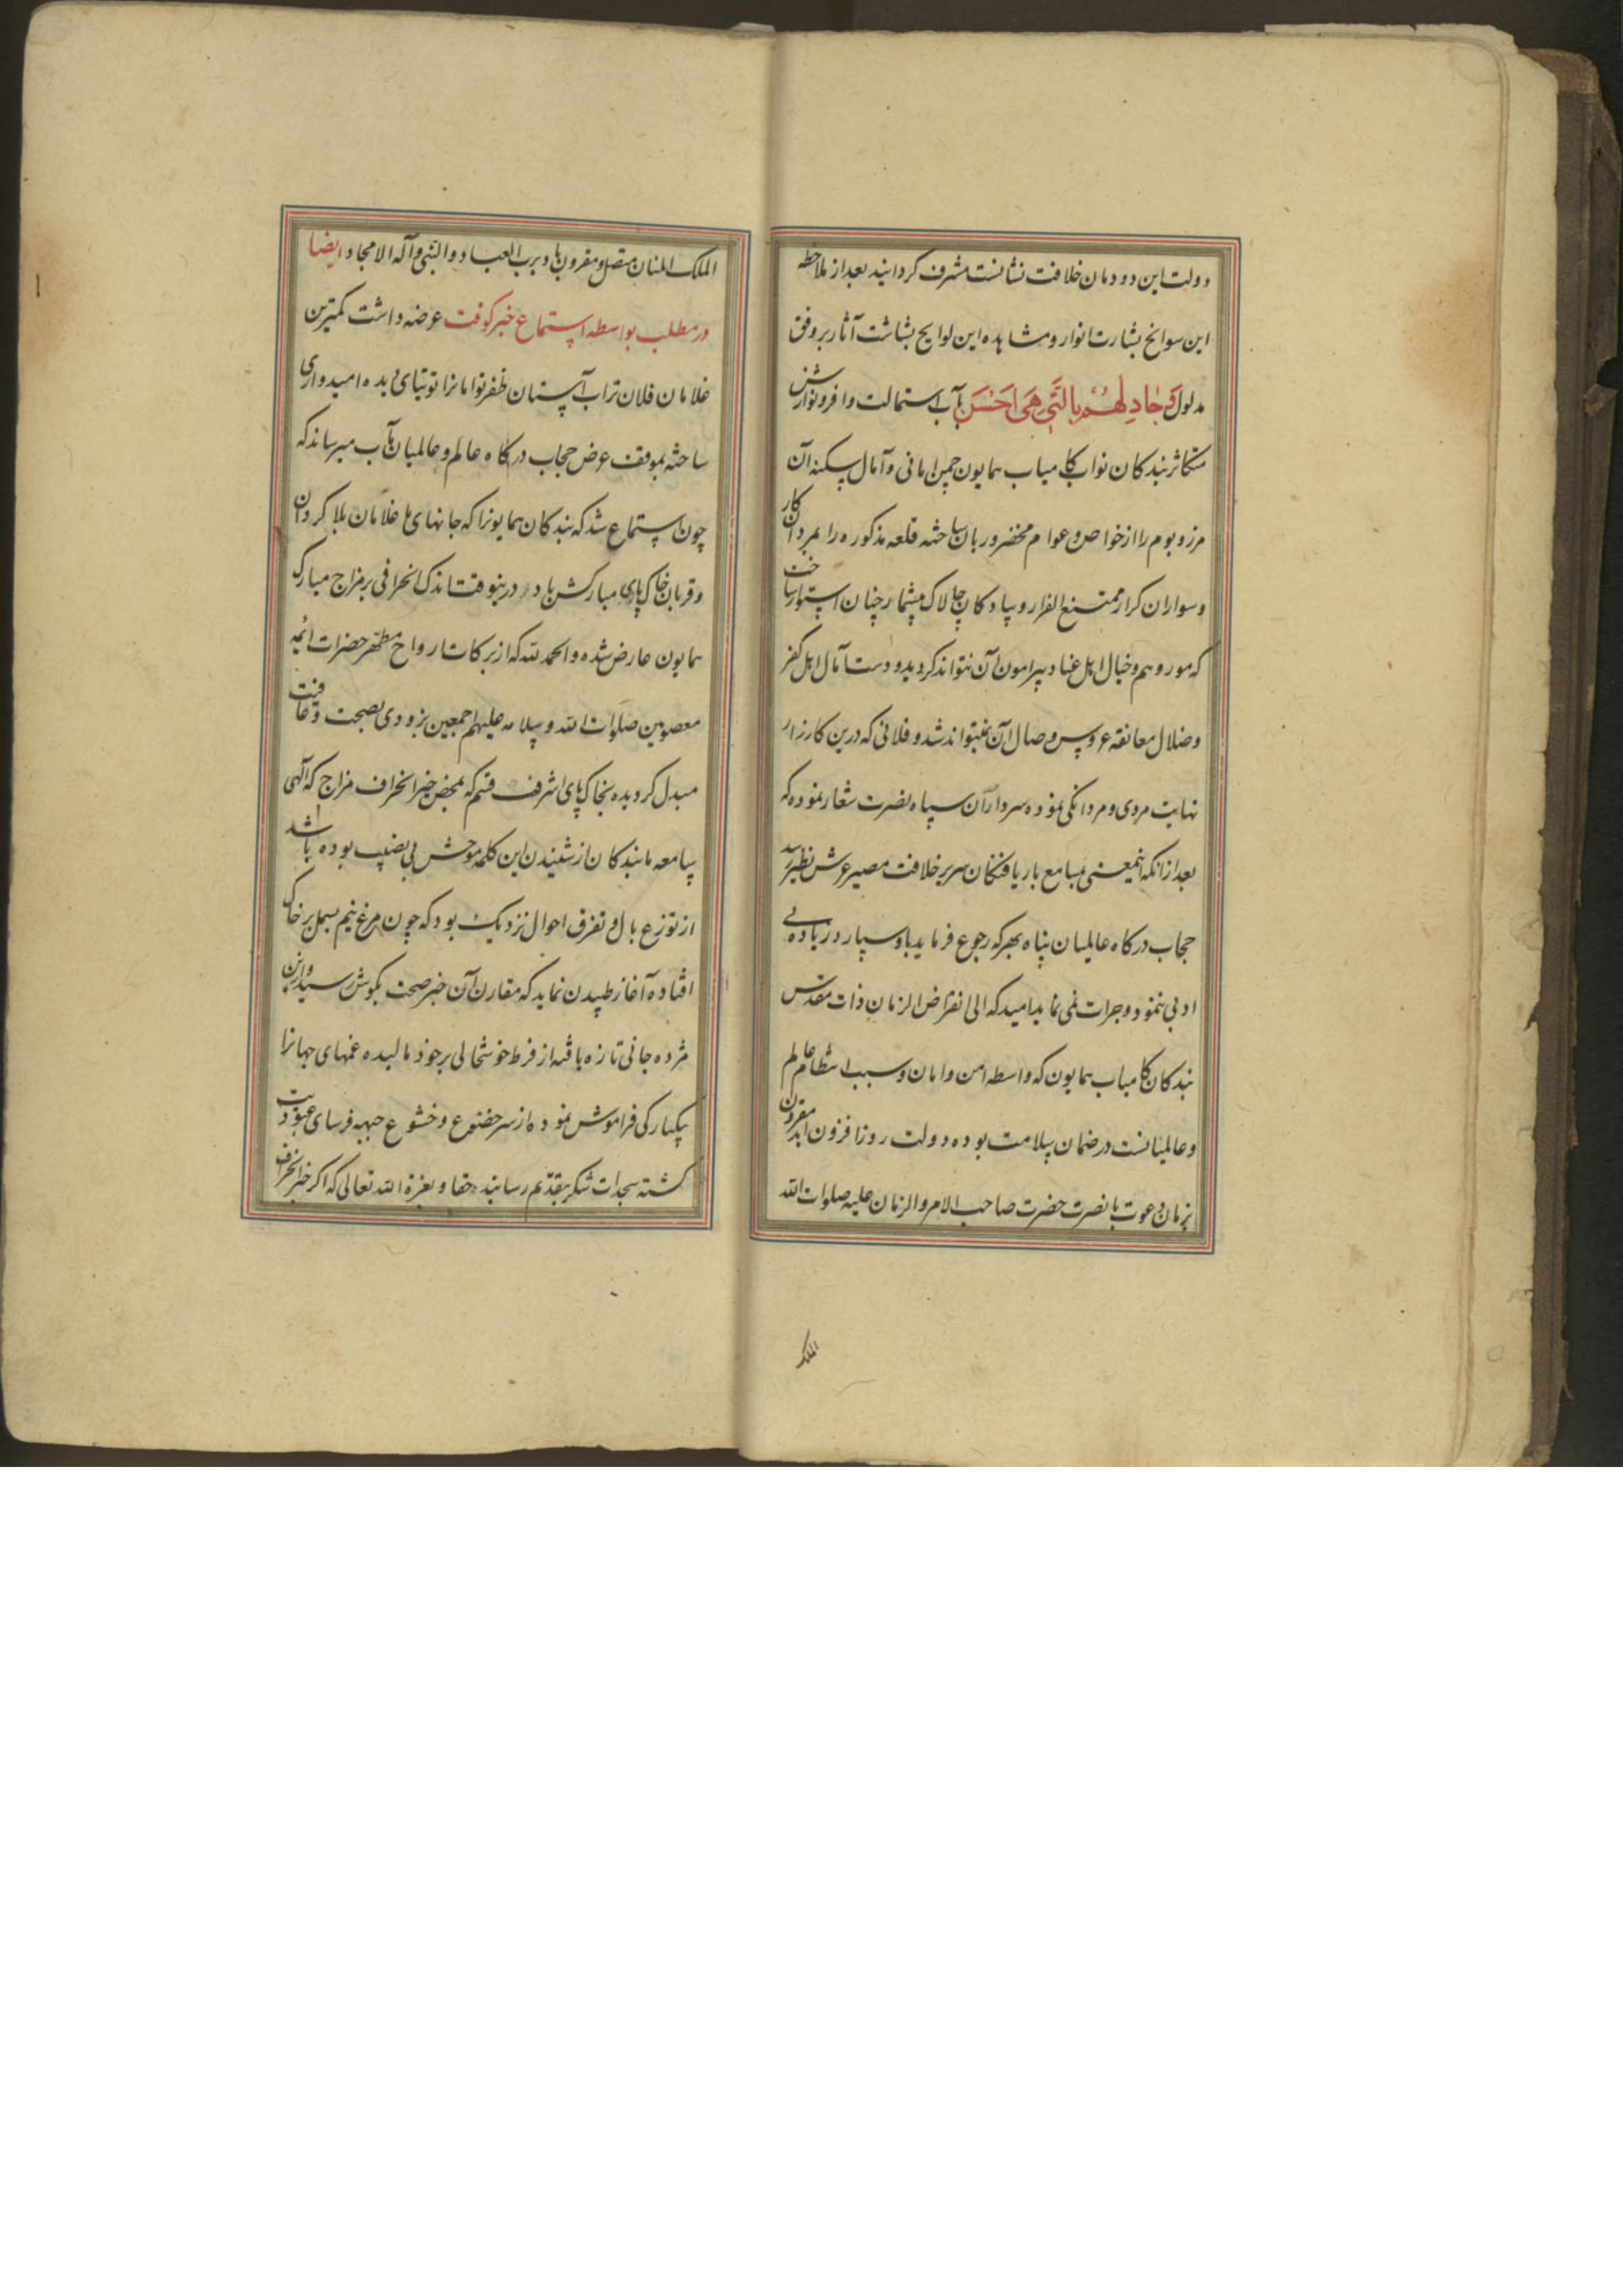 دولت این دودمان خلافت نشانست مشرف گردانید بعد از ملاحظه
این سوانح بشارت انوار و مشاهده این لوایح بشاشت آثار بر وفق
مدلول وَجادِلهُم بِالَّتی هِیَ اَحسَن بآب استمالت وافر و نوازش
متکاثر بندکان نواب کامیاب همایون چمن امانی و آمال سکنه آن
مرز و بوم را از خواص و عوام مخضر و ریان ساخته قلعه مذکوره را بمردان کار
و سواران کرار ممتنع الفرار و پیادکان چالاک بیشمار چنان استوار ساخت
که مور وهم و خیال اهل عناد پیرامون آن نتواند کردید و دست آمال اهل کفر
و ضلال معانقه عروس وصال آن نمیتواند شد و فلانی که درین کارزار
نهایت مردی و مردانکی نموده سردار آن سپاه نصرت شعار نموده که
بعد از آنکه اینمعنی بمسامع باریافتکان سریر خلافت مصیر عرش نظیر رسد
حجاب درکاه عالمیان پناه بهرکه رجوع فرماید باو سپارد زیاده بی
ادبی ننمود و جرات نمی نماید امید که الی انقراض الزمان ذات مقدس
بندکان کامیاب همایون که واسطه امن و امان و سبب انتظام عالم
و عالمیانست در ضمان سلامت بوده دولت روزافزون ابد مقرون
بزمان دعوت با نصرت حضرت صاحب الامر و الزمان علیه صلوات الله
الملک
الملک المنان متصل و مقرون باد برب العباد و النبی و آله الامجاد ایضا
در مطلب بواسطه استماع خبر کوفت عرضه داشت کمترین
غلامان فلان تراب آستان ظفر توامانرا توتیای دیده امیدواری
ساخته بموقف عرض حجاب درکاه عالم و عالمیان مآب میرساند که
چون استماع شد که بندکان همایونرا که جانهای ما غلامان بلا کردان
و قربان خاک پای مبارکش باد درینوقت اندک انحرافی بر مزاج مبارک
همایون عارض شده و الحمد لله که از برکات ارواح مطهر حضرات ائمه
معصومین صلوات الله و سلامه علیهم اجمعین بزودی بصحت و عافیت
مبدل کردیده بخاک پای اشرف قسم که بمحض خبر انحراف مزاج که الهی
سامعه ما بندکان از شنیدن این کلمه موحش بی نصیب بوده باشد
از توزع بال و تفرق احوال نزدیک بود که چون مرغ نیم بسمل بر خاک
افتاده آغاز طپیدن نماید که مقارن آن خبر صحت بکوش رسید و ازین
مژده جانی تازه یافته از فرط خوشحالی بر خود بالیده غمهای جهانرا
یکبارکی فراموش نموده از سر خضوع و خشوع جبهه فرسای عبودیت
کشته سجدات شکر بتقدیم رسانید حقا و بعزة الله تعالی که اکر خبر انحراف